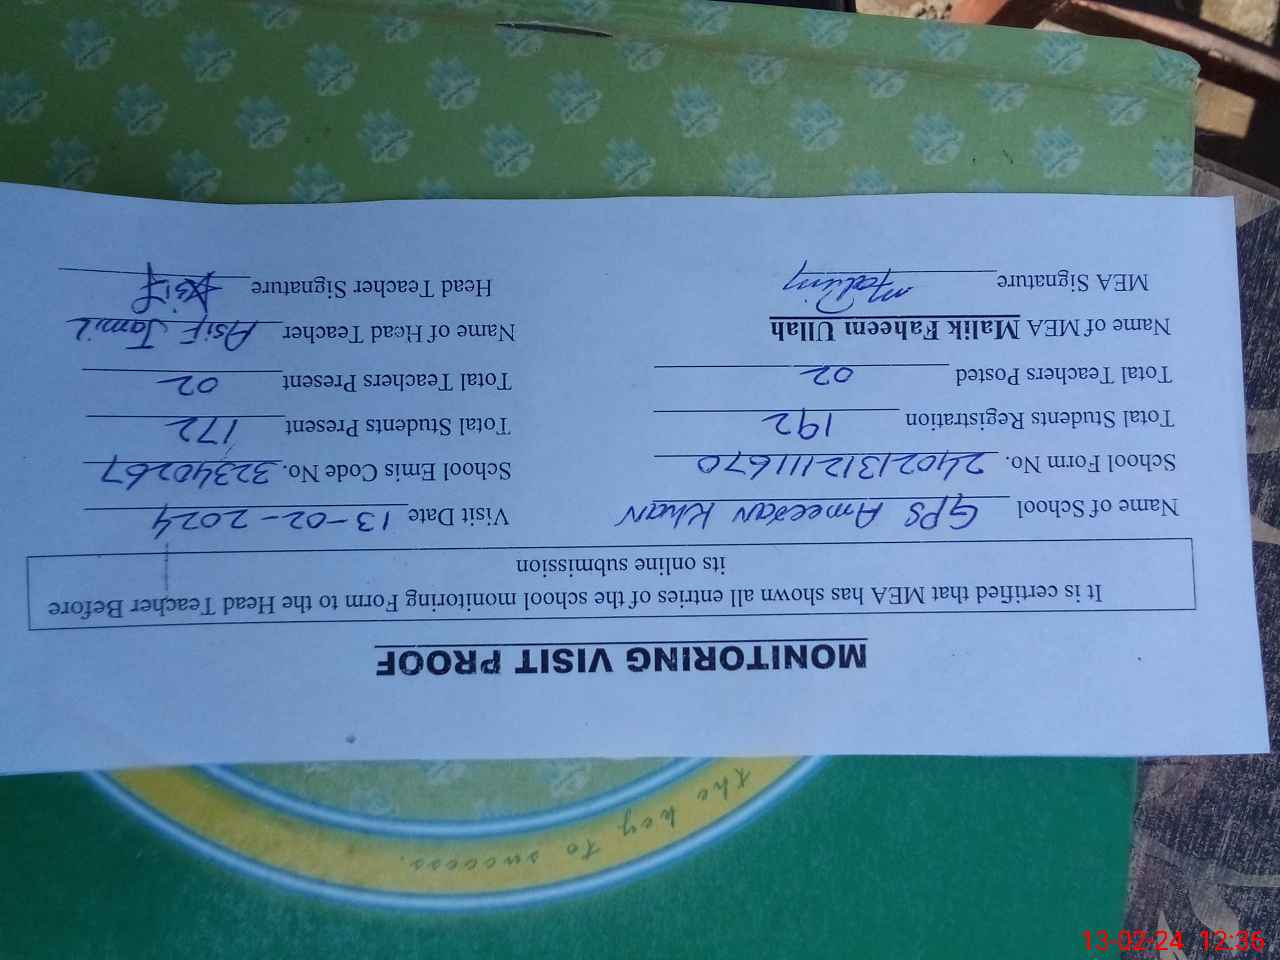 MONITORING VISIT PROOF
It is certified that MEA has shown all entries of the school monitoring Form to the Head Teacher Before
its online submission
Name of School GPS Ameeran Khan Visit Date 13-02-2024
School Form No. 240213121111670 School Emis Code No. 32340267
Total Students Registration 192 Total Students Present 172
Total Teachers Posted 02 Total Teachers Present 02
Name of MEA Malik Faheem Ullah Name of Head Teacher Asif Jamil
MEA Signature Head Teacher Signature Asif
the key to success.
13-02-24 12:36